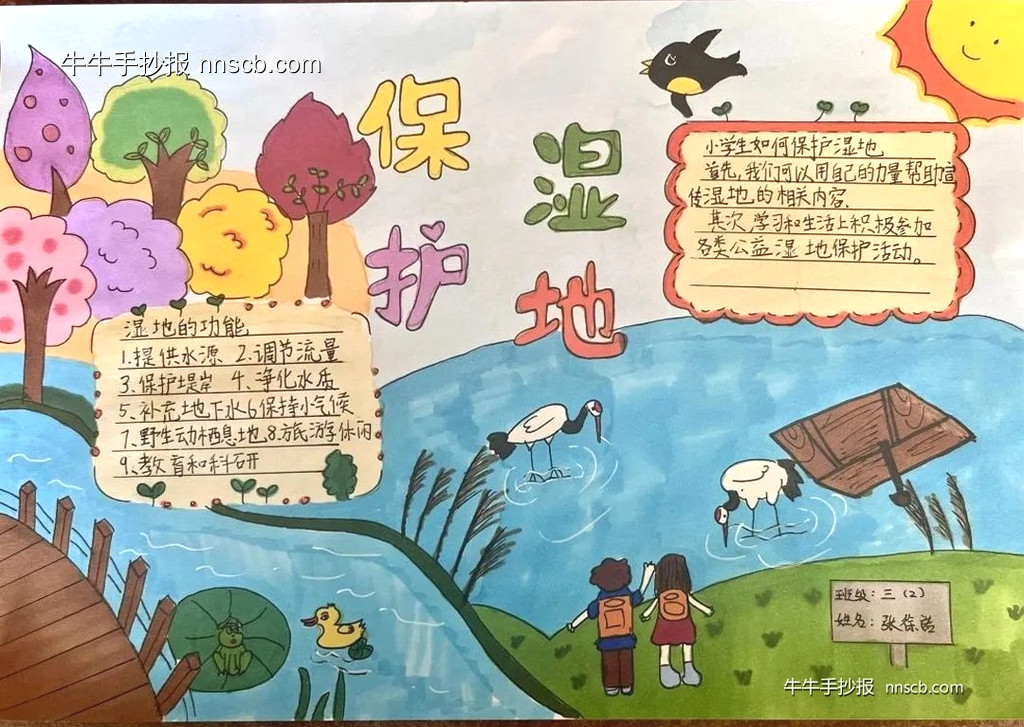 牛牛手抄报 nnscb.com
保护湿地
小学生如何保护湿地
首先,我们可以用自己的力量帮助宣
传湿地的相关内容.
其次,学习和生活上积极参加
各类公益湿地保护活动。
湿地的功能
1.提供水源 2.调节流量
3、保护堤岸 4、净化水质
5、补充地下水6保持小气候
7、野生动栖息地.8.旅游休闲
9、教育和科研
班级:三(2)
姓名:张
牛牛手抄报 nnscb.com